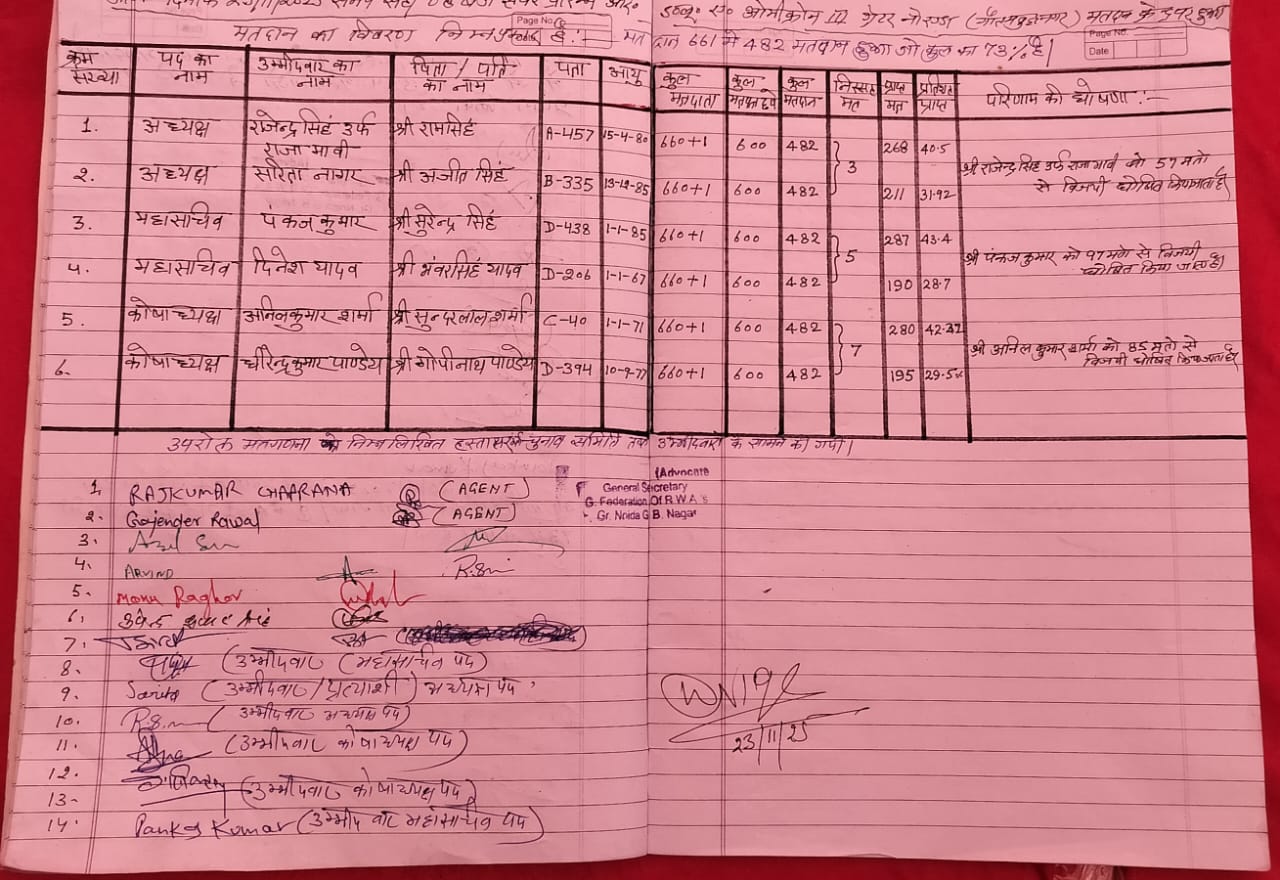 दिनांक 23/11/2025 समय
ओमीक्रोन III ग्रेटर नोएडा (गौतमबुद्धनगर) मतदान के द्वारा हुआ
मतदान का विवरण निम्न है :- मतदान 661 में 482 मतदान हुआ जो कुल का 73% है।
Page No.
Page No.
Date
क्रम संख्या | पद का नाम | उम्मीदवार का नाम | पिता / पति का नाम | पता | आयु | कुल मतदाता | कुल | कुल मतदान | मत | प्राप्त मत | प्रतिशत प्राप्त | परिणाम की घोषणा :-
1. अध्यक्ष राजेन्द्र सिहं उर्फ राजा मावी श्री रामसिहं A-457 15-4-80 660+1 600 482 268 40.5
3 श्री राजेन्द्र सिहं उर्फ राजा मावी को 57 मतो से विजयी घोषित किया जाता है
2. अध्यक्ष सरिता नागर श्री अजीत सिहं B-335 13-12-85 660+1 600 482 211 31.92
3. महासचिव पंकज कुमार श्री सुरेन्द्र सिहं D-438 1-1-85 660+1 600 482 287 43.4
5 श्री पंकज कुमार को 97 मतो से विजयी घोषित किया जाता है।
4. महासचिव दिनेश यादव श्री भंवरसिहं यादव D-206 1-1-67 660+1 600 482 190 28.7
5. कोषाध्यक्ष अनिल कुमार शर्मा श्री सुन्दरलाल शर्मा C-40 1-1-71 660+1 600 482 280
7 श्री अनिल कुमार शर्मा को 85 मतो से विजयी घोषित किया जाता है
6. कोषाध्यक्ष धीरेन्द्र कुमार पाण्डेय श्री गोपीनाथ पाण्डेय D-394 10-9-77 660+1 600 482 195
उपरोक्त मतगणना निम्नलिखित चुनाव समिति उम्मीदवारो के सामने की गयी।
(Advocate
General Secretary
G. Federation Of R.W.A's
Gr. Noida G.B. Nagar
1. RAJKUMAR (AGENT)
2. Gajender Rawal (AGENT)
3.
4. ARVIND
5. Manu Raghav
6.
7.
8. (उम्मीदवार (महासचिव पद)
9. Sarita (उम्मीदवार/प्रत्याशी) अध्यक्ष पद
10. (उम्मीदवार अध्यक्ष पद)
11. (उम्मीदवार कोषाध्यक्ष पद)
12.
(उम्मीदवार कोषाध्यक्ष पद)
13-
14. Pankaj Kumar (उम्मीदवार महासचिव पद)
23/11/25